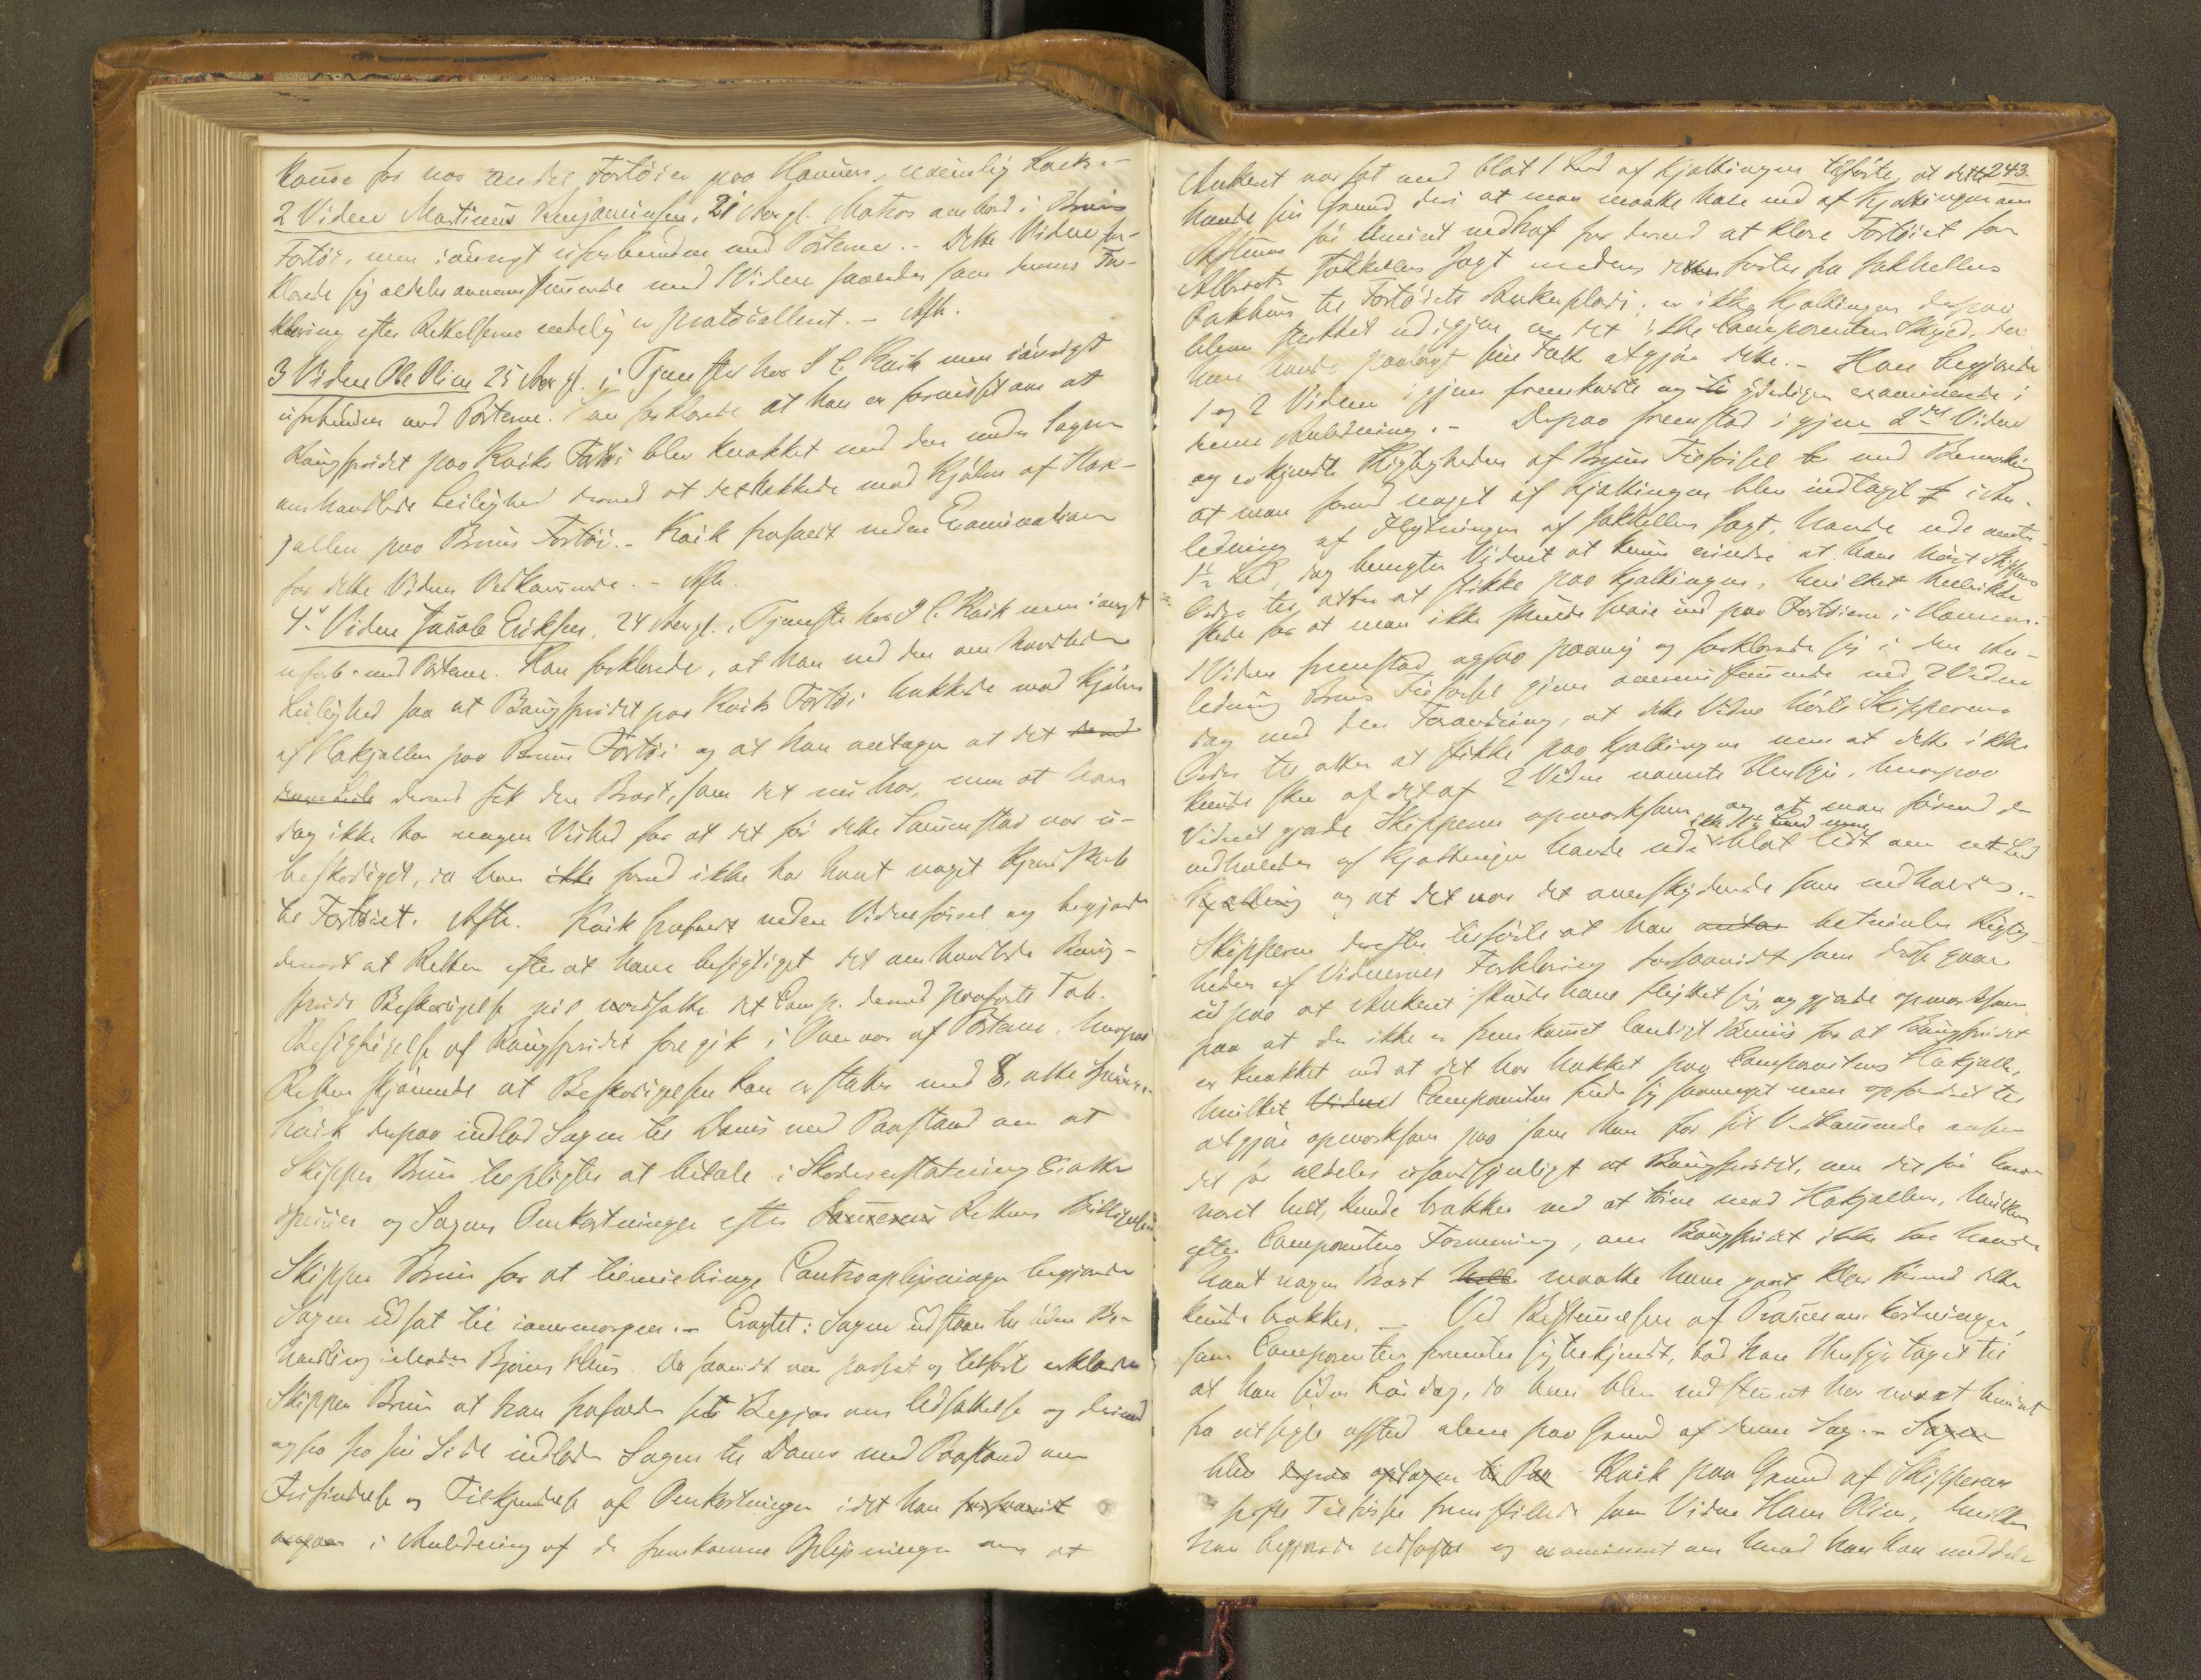 Kause for nos andre Fortøier paa Havnen, nemlig Kaiks.-
2 Vidne Martinus Benjaminsen, 21 Aar gl. Matros ombord i Bruns
Fortøi, men iøvrigt uforbunden med Parterne.- Dette Vidne for-
klarede sig aldeles overensstemmende med 1 Vidne saaledes som dennes For-
klaring efter Rettelserne endelig er protocolleret.- Afh.
3 Vidne Ole Olsen 25 Aar gl. i Tjeneste hos I C Kaik men iøvrigt
uforbunden med Parterne. Han forklarede at han er forvisset om at
Baugspridet paa Kaiks Fortøi blev knækket ved den under Sagen
omhandlede Leilighed derved at det hakkede mod Kjølen af Hæk-
jollen paa Bruns Fortøi.- Kaik frafaldt videre Examination
for dette Vidnes Vedkommende.- Afh.
4de Vidne Jacob Eriksen, 24 Aar gl. i Tjeneste hos I C. Kaik men iøvrigt
uforb. med Parterne. Han forklarede, at han ved den omhandlede
Leilighed saa at Baugspridet paa Kaiks Fortøi hakkede mod Kjølen
af Hækjollen paa Bruns Fortøi og at han antager at det derved
derved fik den Brøst, som det nu har, men at han
dog ikke har nogen Vished for at det før dette Sammenstød var u-
beskadiget, da han ikke forud ikke har havt noget Kjendskab
til Fortøiet. Afh. Kaik frafaldt videre Vidneførsel og begjærede
dernæst at Retten efter at have besigtiget det omhandlede Baug-
sprids Beskadigelse vil værdsætte det Comp. derved paaførte Tab.
Besigtigelse af Baugspridet foregik i Overvær af Parterne, hvorpaa
Retten skjønnede at Beskadigelsen kan erstattes med 8, otte Spdlr.
Kaik derpaa indlod Sagen til Doms med Paastand om at
Skipper Brun tilpligtes at betale i Skadeserstatning 8 otte
Specier og Sagens Omkostninger efter Rettens Billighed
Skipper Brun for at tilveiebringe Contraoplysninger begjærede
Sagen udsat til imorgen.- Eragtet: Sagen udstaar til videre Be-
handling Bruns Huus. Da saavidt var passeret og tilført erklærede
Skipper Brun at han frafalder sit Begjær om Udsættelse og derved
ogsaa fra sin Side indlader Sagen til Doms med Paastand om
Frifindelse og Tilkjendelse af Omkostninger idet han forsaavidt
angaar i Anledning af de fremkomne Oplysninger om at
243.
Ankeret var sat med blot 1 Led af Kjættingen tilførte, at dette
havde sin Grund deri at man maatte hale ind af Kjættingen om
Aftenen før Uveiret indtraf for derved at klare Fortøiet for
Albrect Fakkellers Jagt medens denne forlod fra Fakkellers
Pakhuus til Fortøiets Ankerplads; er ikke Kjættingen derpaa
bleven stukket ud igjen er det ikke Comparentens Skyld, da
han havde paalagt sine Folk at gjøre dette.- Han begjærede
1 og 2 Vidne igjen fremkaldte og yderligere examinerede i
denne Anledning.- Derpaa fremstod igjen 2det Vidne
og erkjendte Rigtigheden af Bruns Tilførsel med Bemærkning
at man forend noget af Kjættingen blev indtaget i An-
ledning af Flytningen af Fakkellers Jagt, havde ude omtr.
1½ Led, dog benegter Vidnet at kunne erindre at have hørt Skippers
Ordre til atter at stikke paa Kjættingen, hvilket heller ikke
skede for at man ikke skulde svaie ind paa Fortøierne i Havnen.
1 Vidne fremstod ogsaa paany og forklarede sig i den An-
ledning Bruns Tilførsel gjorde overensstemmende med 2 Vidne
dog med den Forandring, at dette Vidne hørte Skipperens
Ordre til atter at stikke paa Kjættingen men at dette ikke
kunde skee af det af 2 Vidne nævnte Hensyn, hvorpaa
Vidnet gjorde Skipperen opmærksom og at man førend
indhalede af Kjættingen havde ude ikke 1½ Led men blot lidt om et Led
Kjætting og at det var det overskydende som indhaledes.-
Skipperen derefter tilførte at han antar betvivler Rigtig-
heden af Vidnernes Forklaring forsaavidt som disse gaar
ud paa at Ankeret skulde have flyttet sig og gjorde opmærksom
paa at der ikke er fremkommet lovligt Beviis for at Baugspridet
er knækket ved at det har hakket paa Comparentens Hækjolle,
hvilket Vidnet Comparenten finder sig saameget mere opfordret til
at gjøre opmærksom paa som han for sit Vedkommende anser
det for aldeles usandsynligt at Baugspridet, om det før havde
været heelt, kunde brækkes ved at støde mod Hækjollen, hvilken
efter Comparentens Formening, om Baugspridet ikke før havde
havt nogen Brøst maatte have gaaet klar førend dette
kunde brækkes.- Ved Bestemmelsen af Procesomkostninger,
som Comparenten formente sig tilkjendt, bad han Hensyn taget til
at han siden Lørdag, da han blev indstevnt har været hindret
fra at sejle afsted alene paa Grund af denne Sag.- Sagen
blev derpaa optagen til Kaik paa Grund af Skipperens
sidste Tilførsel fremstillede som Vidne Hans Olsen, hvilken
han begjærede edfæstet og examineret om hvad han kan meddele